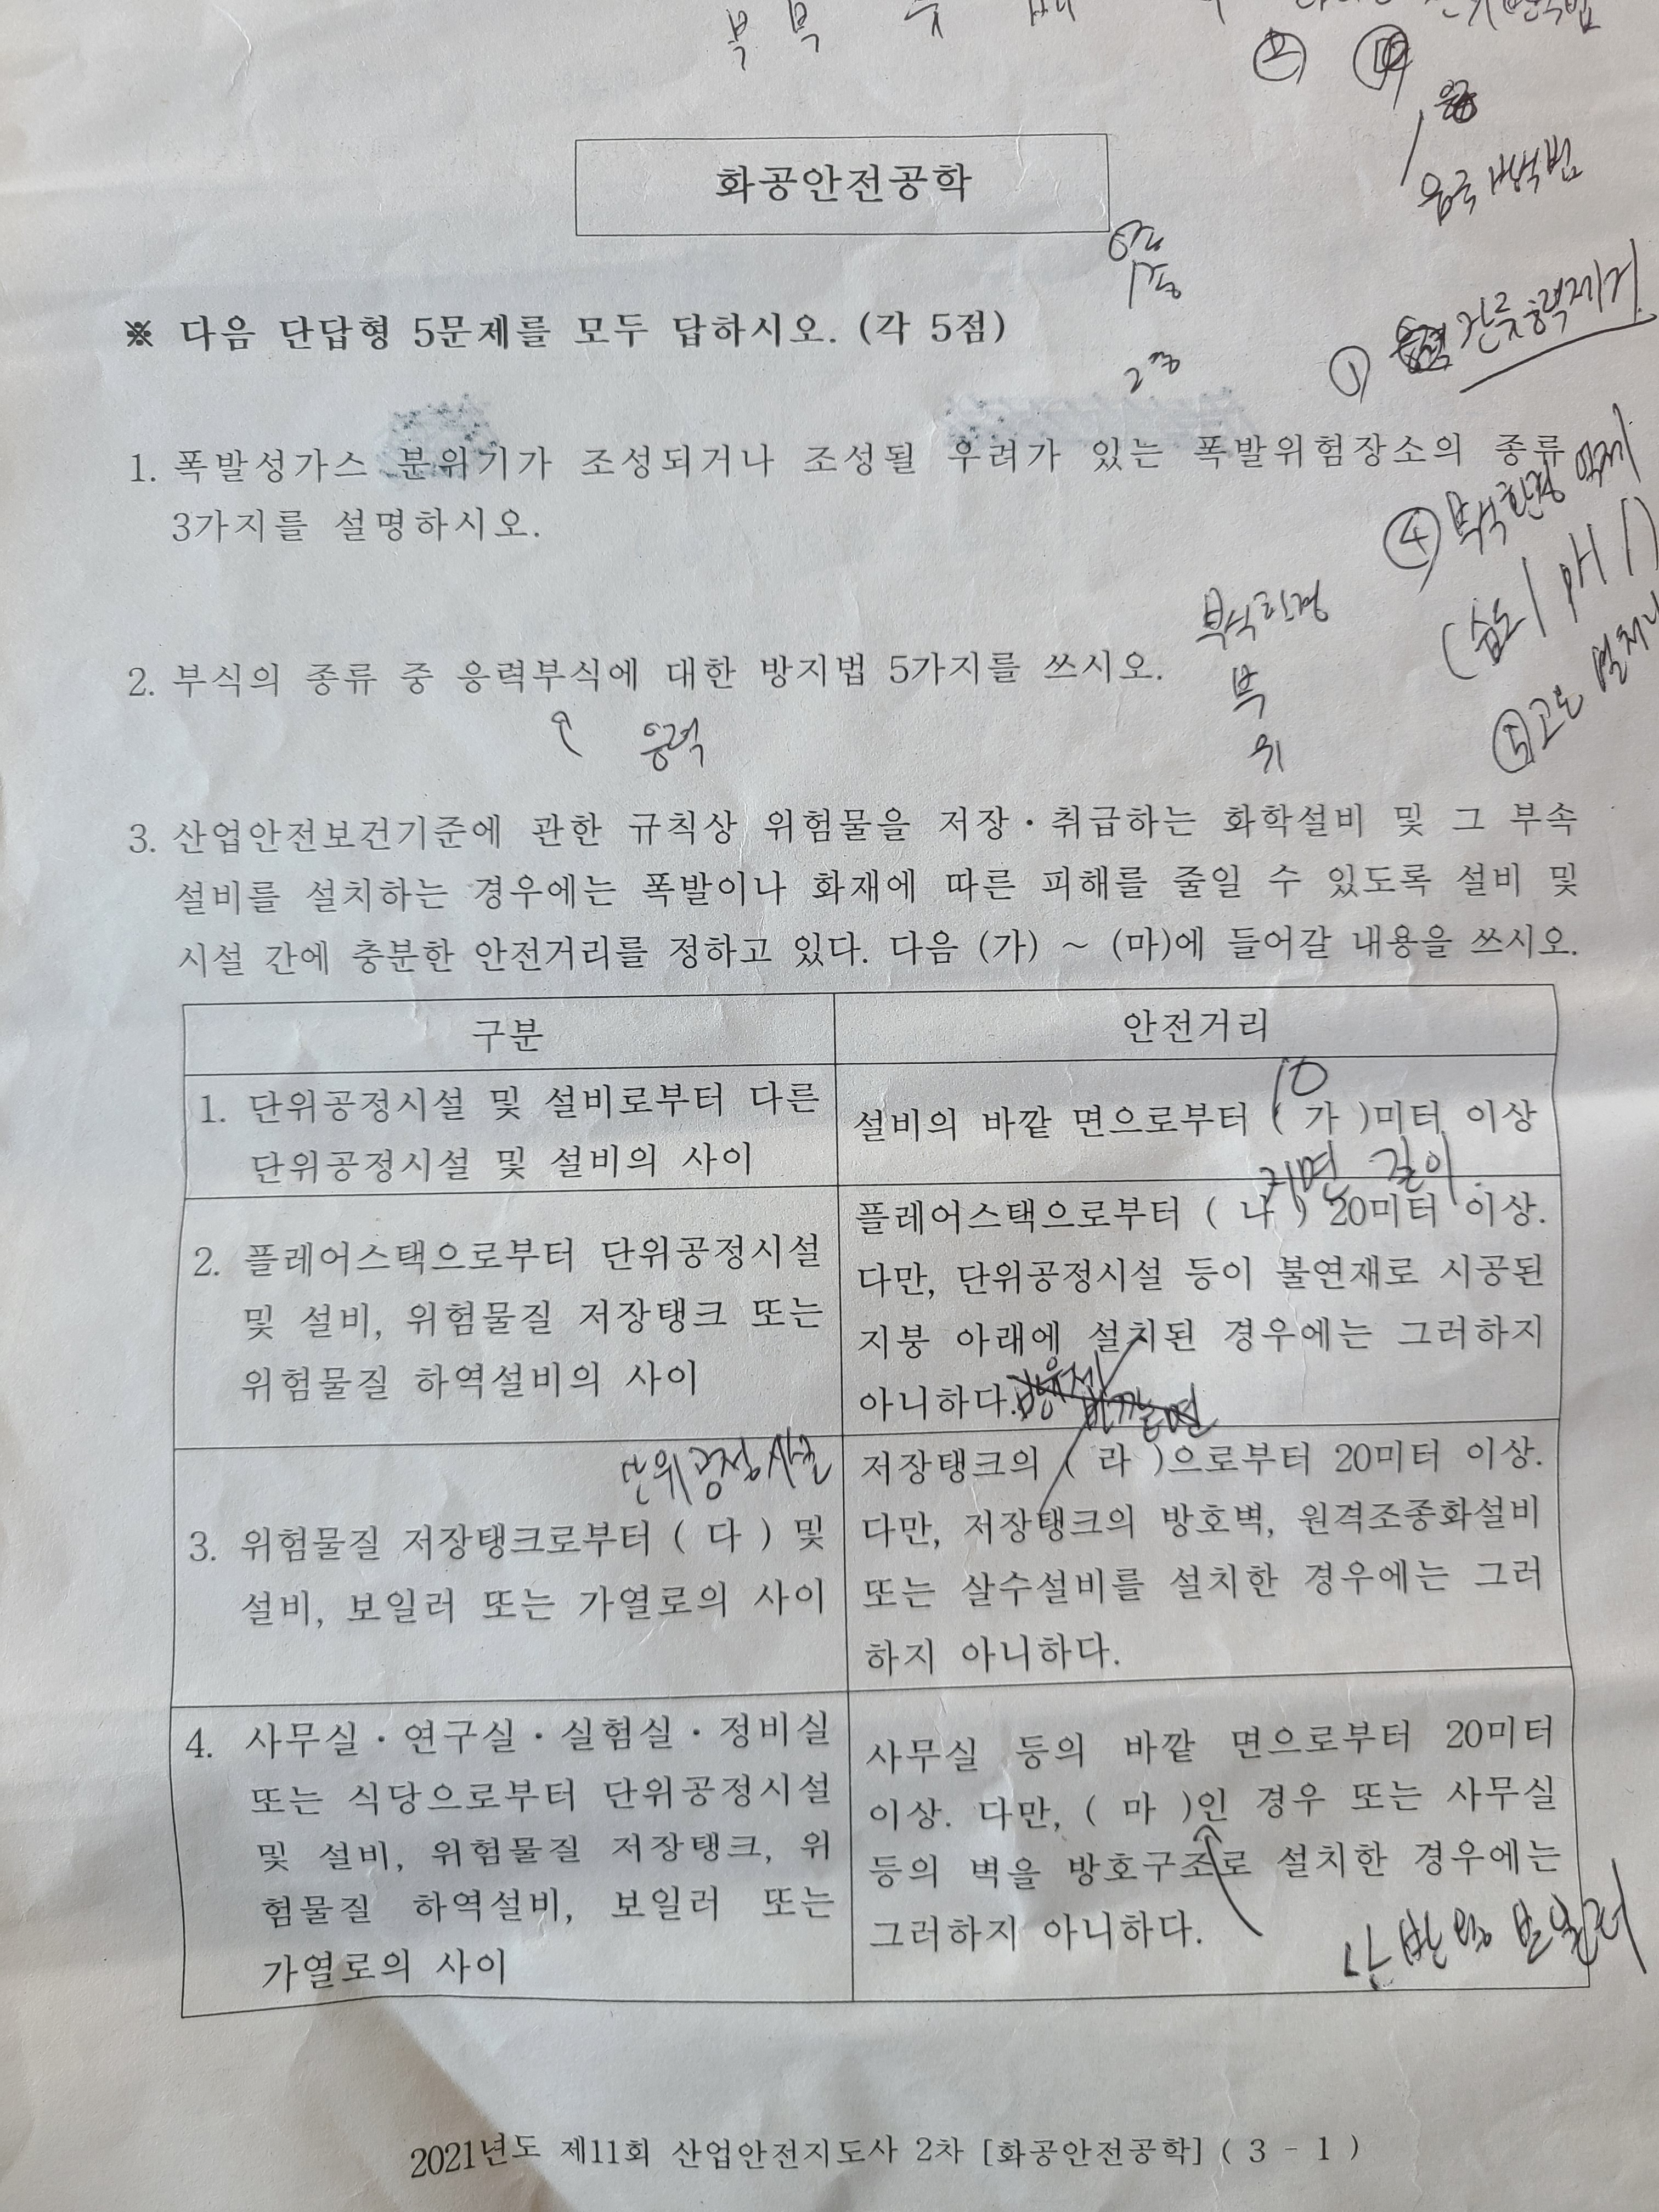 부 복
②
음극 방식법
화공안전공학
※ 다음 단답형 5문제를 모두 답하시오. (각 5점)
① 잔류응력제거
1. 폭발성가스 분위기가 조성되거나 조성될 우려가 있는 폭발위험장소의 종류
3가지를 설명하시오.
④ 부식환경 억제
(습도 / pH /)
부식환경
부
위
2. 부식의 종류 중 응력부식에 대한 방지법 5가지를 쓰시오.
응력
⑤ 고온 열처리
3. 산업안전보건기준에 관한 규칙상 위험물을 저장·취급하는 화학설비 및 그 부속
설비를 설치하는 경우에는 폭발이나 화재에 따른 피해를 줄일 수 있도록 설비 및
시설 간에 충분한 안전거리를 정하고 있다. 다음 (가) ~ (마)에 들어갈 내용을 쓰시오.
구분
안전거리
1. 단위공정시설 및 설비로부터 다른
단위공정시설 및 설비의 사이
10
설비의 바깥 면으로부터 ( 가 )미터 이상
2. 플레어스택으로부터 단위공정시설
및 설비, 위험물질 저장탱크 또는
위험물질 하역설비의 사이
플레어스택으로부터 ( 나 ) 20미터 이상.
다만, 단위공정시설 등이 불연재로 시공된
지붕 아래에 설치된 경우에는 그러하지
아니하다.
바깥면
단위공정시설
3. 위험물질 저장탱크로부터 ( 다 ) 및
설비, 보일러 또는 가열로의 사이
저장탱크의 ( 라 )으로부터 20미터 이상.
다만, 저장탱크의 방호벽, 원격조종화설비
또는 살수설비를 설치한 경우에는 그러
하지 아니하다.
4. 사무실·연구실·실험실·정비실
또는 식당으로부터 단위공정시설
및 설비, 위험물질 저장탱크, 위
험물질 하역설비, 보일러 또는
가열로의 사이
사무실 등의 바깥 면으로부터 20미터
이상. 다만, ( 마 )인 경우 또는 사무실
등의 벽을 방호구조로 설치한 경우에는
그러하지 아니하다.
난방용 보일러
2021년도 제11회 산업안전지도사 2차 [화공안전공학] ( 3 - 1 )